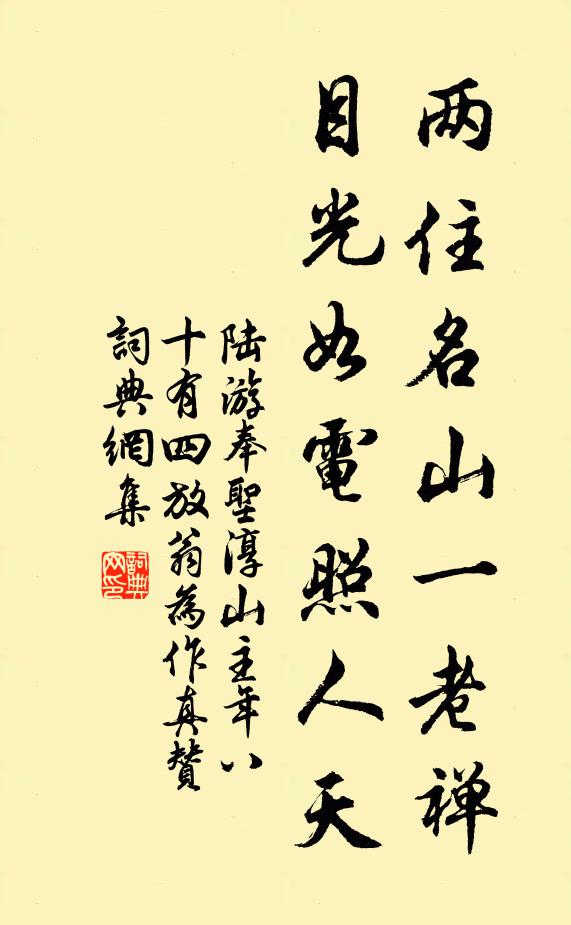 两住名山一老禅
目光如電照人天
陆游奉聖淳山主年八
十有四放翁為作真赞
詞典網集
詞典
网印